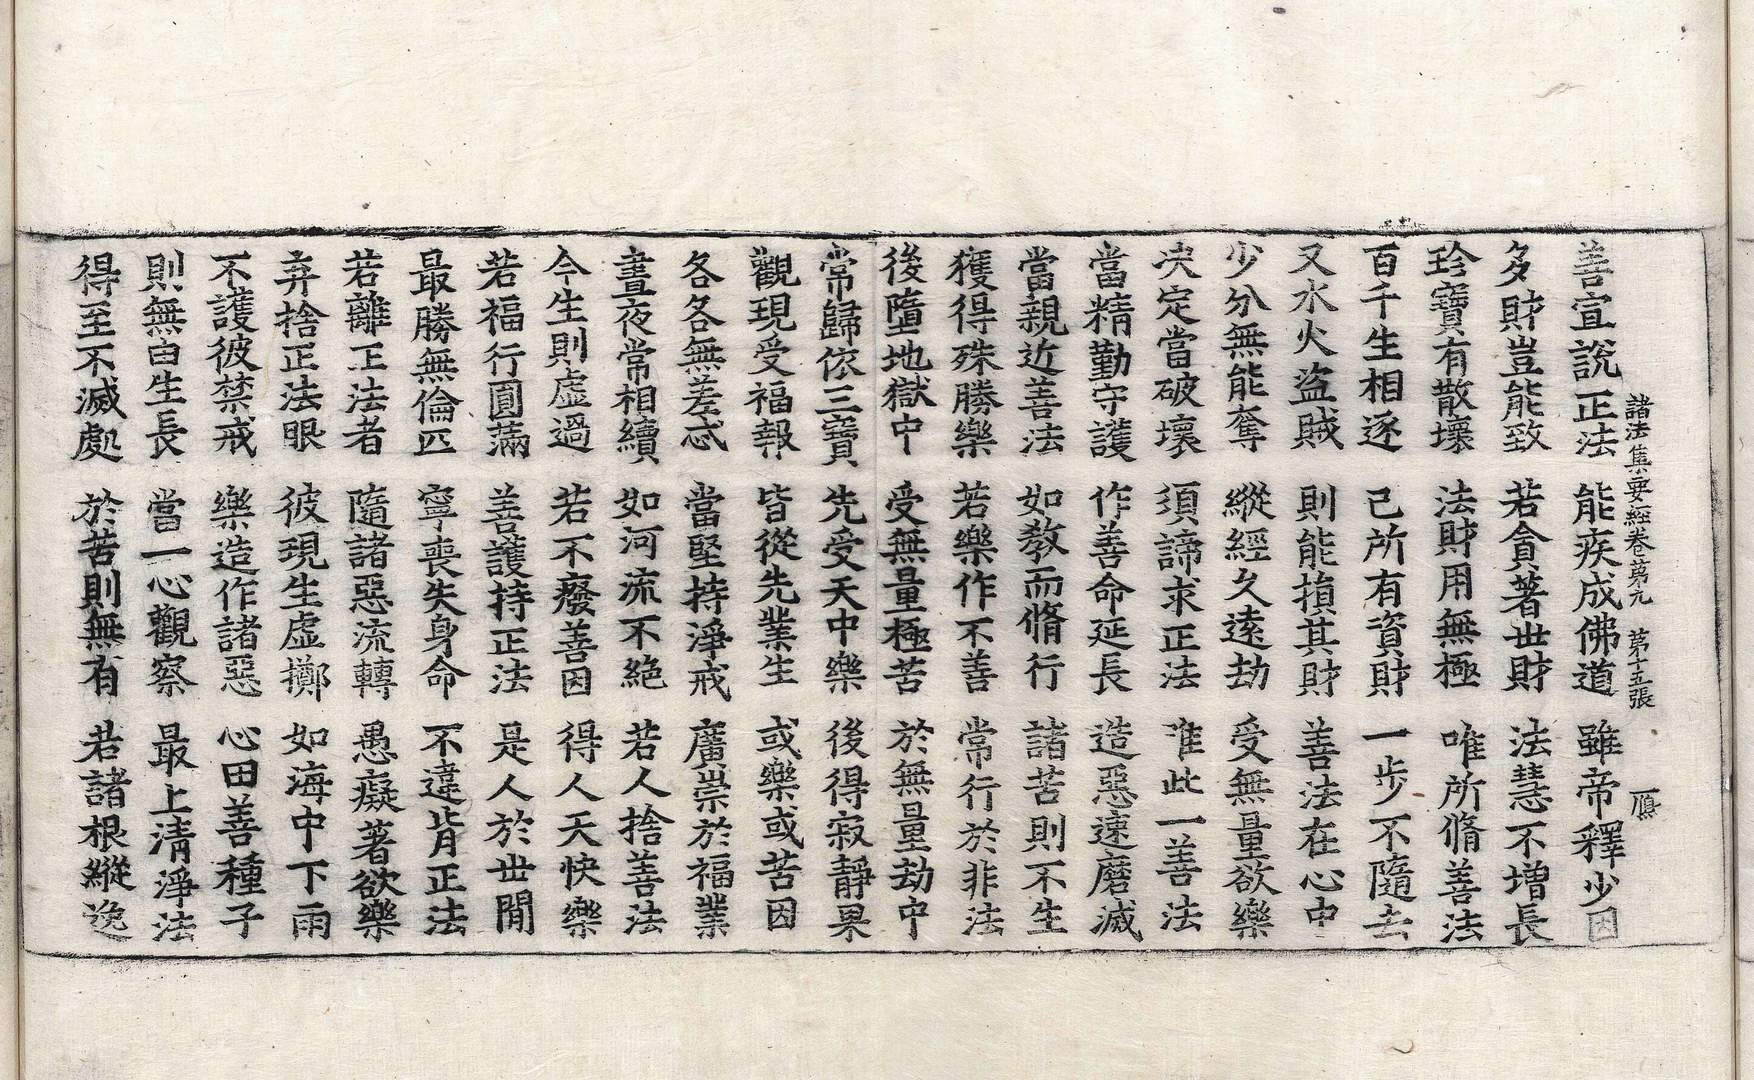 諸法集要經卷第九　第十五張　鴈
善宜說正法　能疾成佛道　雖帝釋少因
多財豈能致　若貪著世財　法慧不增長
珍寶有散壞　法財用無極　唯所脩善法
百千生相逐　己所有資財　一步不隨去
又水火盜賊　則能損其財　善法在心中
少分無能奪　縱經久遠劫　受無量欲樂
決定當破壞　須諦求正法　唯此一善法
當精勤守護　作善命延長　造惡速磨滅
當親近善法　如教而脩行　諸苦則不生
獲得殊勝樂　若樂作不善　常行於非法
後墮地獄中　受無量極苦　於無量劫中
常歸依三寶　先受天中樂　後得寂靜果
觀現受福報　皆從先業生　或樂或苦因
各各無差忒　當堅持淨戒　廣崇於福業
晝夜常相續　如河流不絕　若人捨善法
今生則虛過　若不癈善因　得人天快樂
若福行圓滿　善護持正法　是人於世間
最勝無倫匹　寧喪失身命　不違背正法
若離正法者　隨諸惡流轉　愚癡著欲樂
弃捨正法眼　彼現生虛擲　如海中下雨
不護彼禁戒　樂造作諸惡　心田善種子
則無由生長　當一心觀察　最上清淨法
得至不滅處　於苦則無有　若諸根縱逸